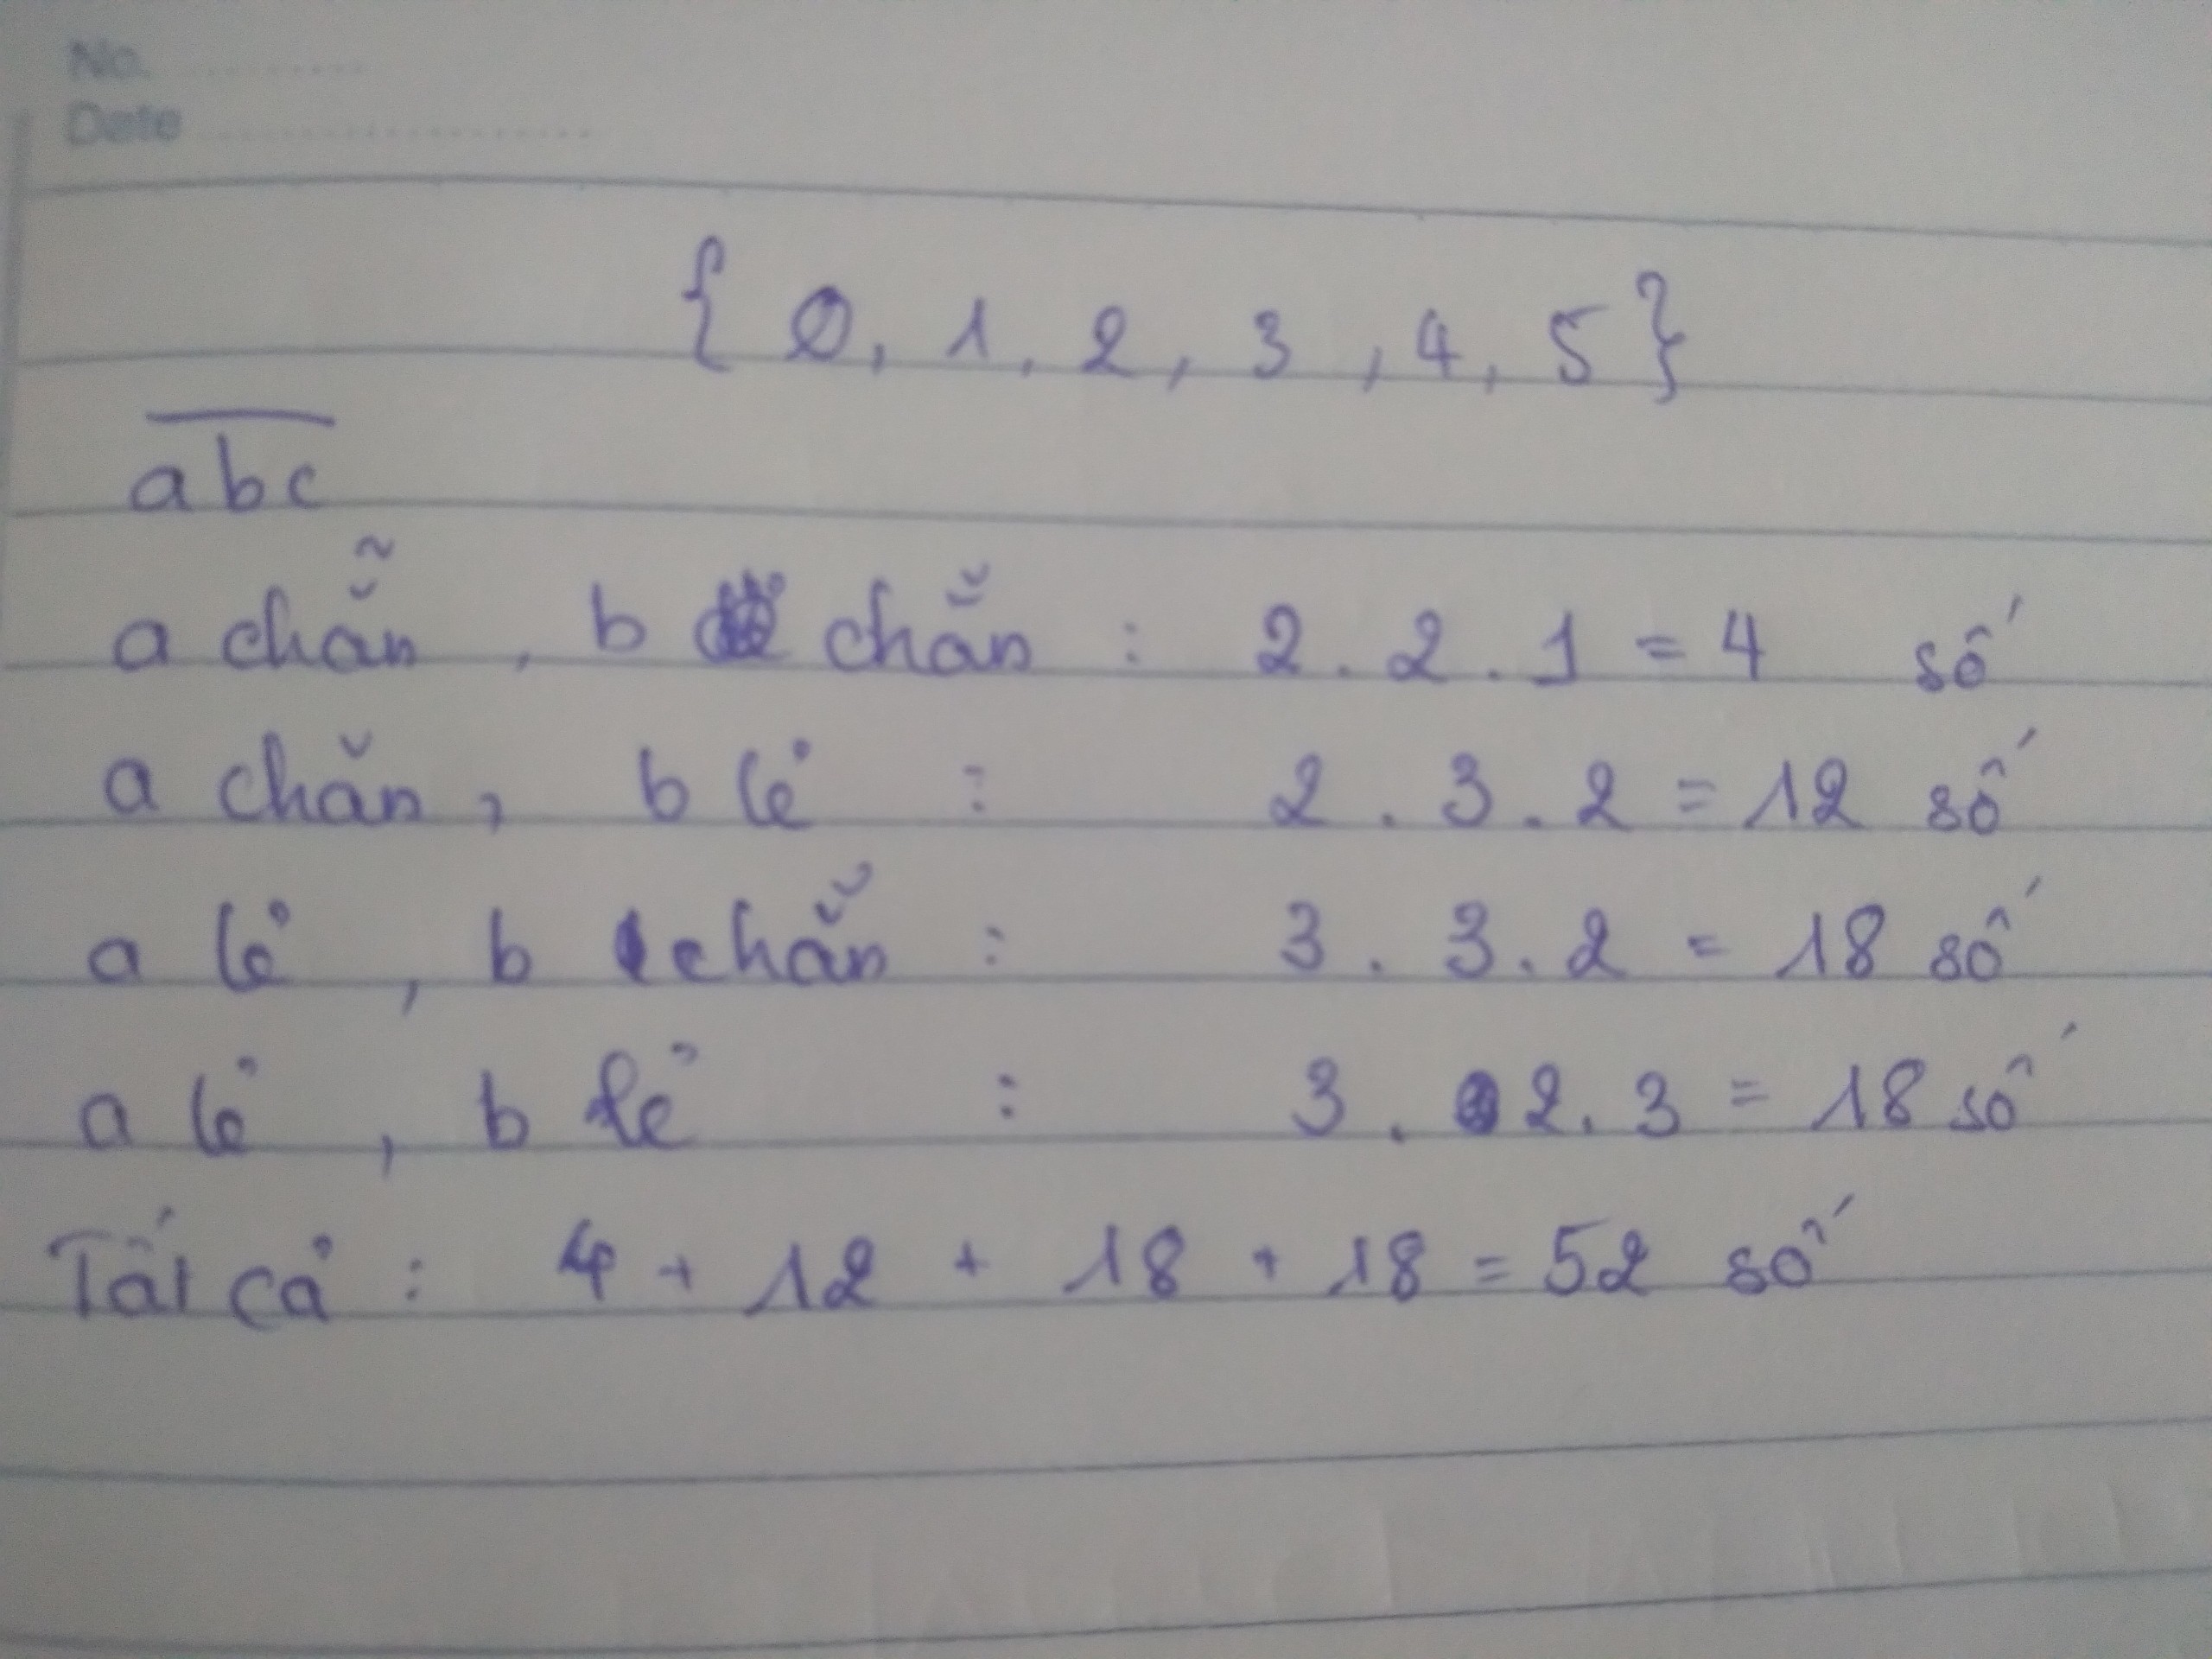 No.
Date
{ 0, 1, 2, 3, 4, 5 }
abc
a chẵn, b chẵn : 2 . 2 . 1 = 4 số
a chẵn, b lẻ : 2 . 3 . 2 = 12 số
a lẻ, b chẵn : 3 . 3 . 2 = 18 số
a lẻ, b lẻ : 3 . 2 . 3 = 18 số
Tất cả : 4 + 12 + 18 + 18 = 52 số